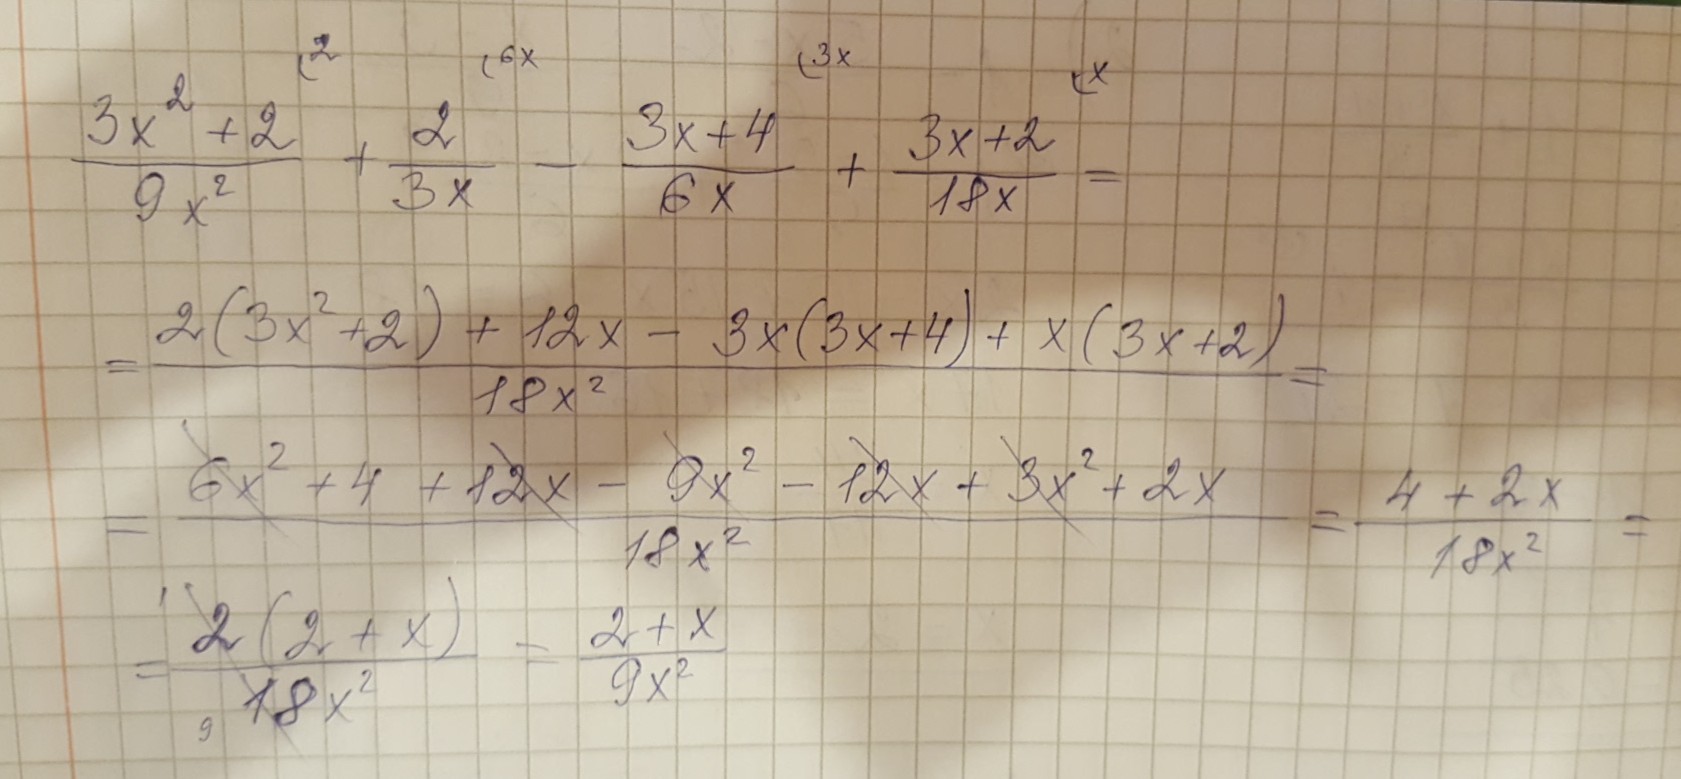 (3x² + 2)/(9x²) ⁽² + 2/(3x) ⁽⁶ˣ − (3x + 4)/(6x) ⁽³ˣ + (3x + 2)/(18x) ⁽ˣ =
= (2(3x² + 2) + 12x − 3x(3x + 4) + x(3x + 2))/(18x²) =
= (6x² + 4 + 12x − 9x² − 12x + 3x² + 2x)/(18x²) = (4 + 2x)/(18x²) =
= (2 ¹ (2 + x))/(18 ₉ x²) = (2 + x)/(9x²)